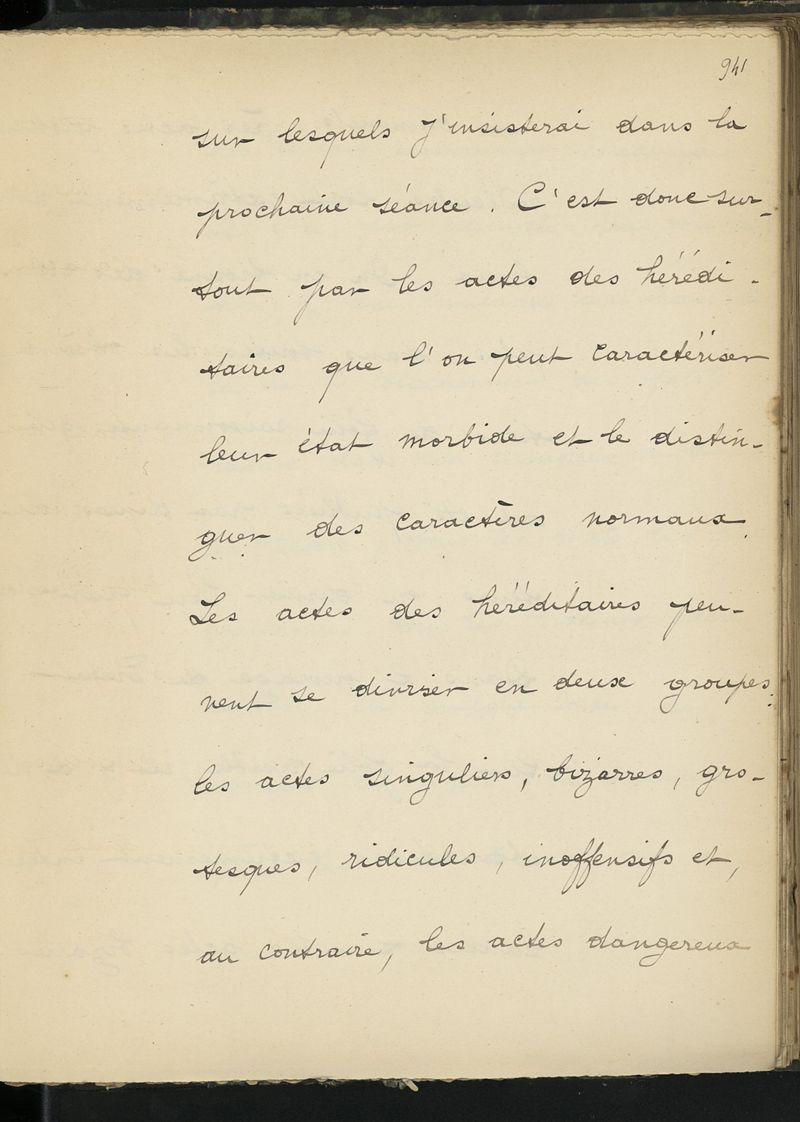 941
sur lesquels j'insisterai dans la
prochaine séance. C'est donc sur-
tout par les actes des hérédi-
taires que l'on peut caractériser
leur état morbide et le distin-
guer des caractères normaux.
Les actes des héréditaires peu-
vent se diviser en deux groupes:
les actes singuliers, bizarres, gro-
tesques, ridicules, inoffensifs et,
au contraire, les actes dangereux